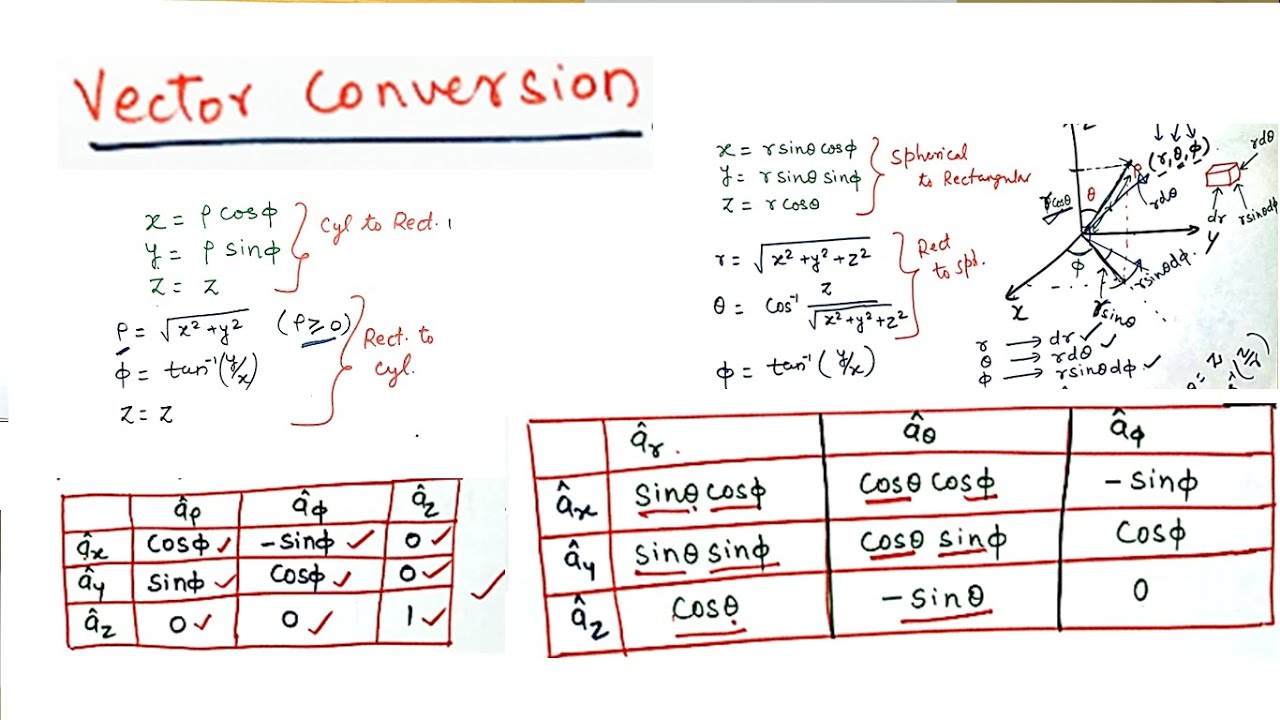 Vector Conversion
x = ρ cosϕ
y = ρ sinϕ
z = z
Cyl to Rect.
ρ = √x² + y² (ρ ≥ 0)
ϕ = tan⁻¹(y/x)
z = z
Rect. to
cyl.
x = r sinθ cosϕ
y = r sinθ sinϕ
z = r cosθ
Spherical
to Rectangular
r = √x² + y² + z²
θ = cos⁻¹ z / √x² + y² + z²
ϕ = tan⁻¹ (y/x)
Rect
to sph.
(r, θ, ϕ)
rdθ
r cosθ
θ
P
rdθ
dr
r sinθdϕ
y
ϕ
r sinθdϕ
x
r sinθ
r → dr ✓
θ → rdθ ✓
ϕ → r sinθdϕ ✓
âρ âϕ âz
âx cosϕ ✓ -sinϕ ✓ 0 ✓
ây sinϕ ✓ cosϕ ✓ 0 ✓
âz 0 ✓ 0 ✓ 1 ✓
✓
âr. âθ âϕ
âx sinθ cosϕ cosθ cosϕ - sinϕ
ây sinθ sinϕ cosθ sinϕ cosϕ
âz cosθ - sinθ 0